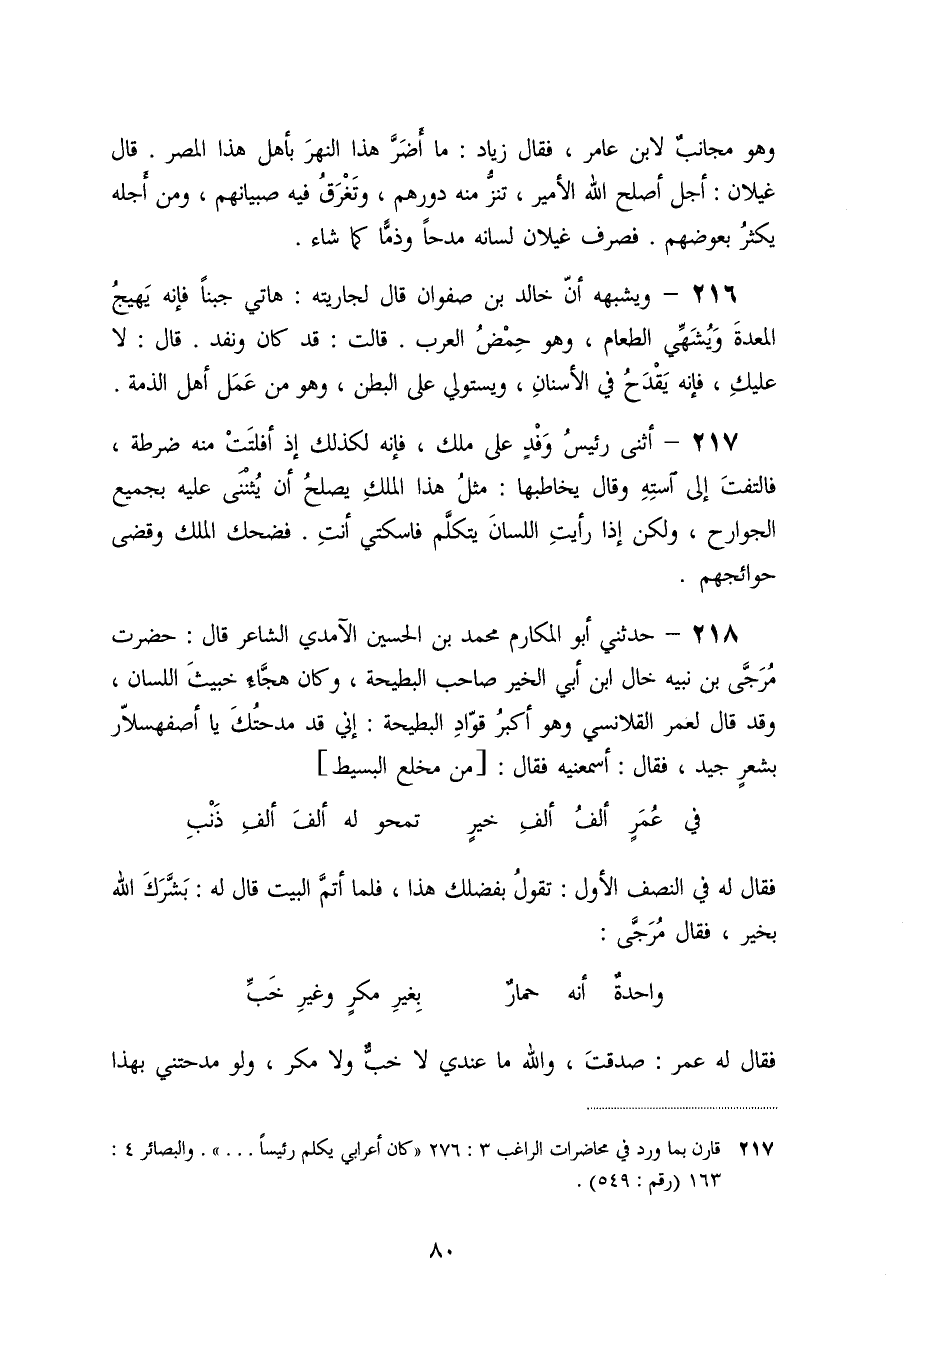 وهو مجانبٌ لابن عامر ، فقال زياد : ما أَضَرَّ هذا النهرَ بأهل هذا المصر . قال
غيلان : أجل أصلح الله الأمير ، تنزُّ منه دورهم ، وتَغْرَقُ فيه صبيانهم ، ومن أَجله
يكثرُ بعوضهم . فصرف غيلان لسانه مدحاً وذمًّا كما شاء .
٢١٦ – ويشبهه أنّ خالد بن صفوان قال لجاريته : هاتي جبناً فإنه يَهيجُ
المعدةَ وَيُشَهِّي الطعام ، وهو حِمْضُ العرب . قالت : قد كان ونفد . قال : لا
عليكِ ، فإنه يَقْدَحُ في الأسنانِ ، ويستولي على البطن ، وهو من عَمَل أهل الذمة .
٢١٧ – أثنى رئيسُ وَفْدٍ على ملك ، فإنه لكذلك إذ أفلتَتْ منه ضرطة ،
فالتفتَ إلى ٱستِهِ وقال يخاطبها : مثلُ هذا الملكِ يصلحُ أن يُثْنَى عليه بجميع
الجوارح ، ولكن إذا رأيتِ اللسانَ يتكلَّم فاسكتي أنتِ . فضحك الملك وقضى
حوائجهم .
٢١٨ – حدثني أبو المكارم محمد بن الحسين الآمدي الشاعر قال : حضرت
مُرَجَّى بن نبيه خال ابن أبي الخير صاحب البطيحة ، وكان هجَّاءً خبيثَ اللسان ،
وقد قال لعمر القلانسي وهو أكبرُ قوّادِ البطيحة : إني قد مدحتُكَ يا أصفهسلاّر
بشعرٍ جيد ، فقال : أسمعنيه فقال : [ من مخلع البسيط ]
في عُمَرٍ ألفُ ألفِ خيرٍ تمحو له ألفَ ألفِ ذَنْبِ
فقال له في النصف الأول : تقولُ بفضلك هذا ، فلما أتمَّ البيت قال له : بَشَّرَكَ الله
بخير ، فقال مُرَجَّى :
واحدةٌ أنه حمارٌ بِغيرِ مكرٍ وغيرِ خَبِّ
فقال له عمر : صدقتَ ، والله ما عندي لا خبٌّ ولا مكر ، ولو مدحتني بهذا
٢١٧ قارن بما ورد في محاضرات الراغب ٣ : ٢٧٦ «كان أعرابي يكلم رئيساً . . . » . والبصائر ٤ :
١٦٣ (رقم : ٥٤٩) .
٨٠